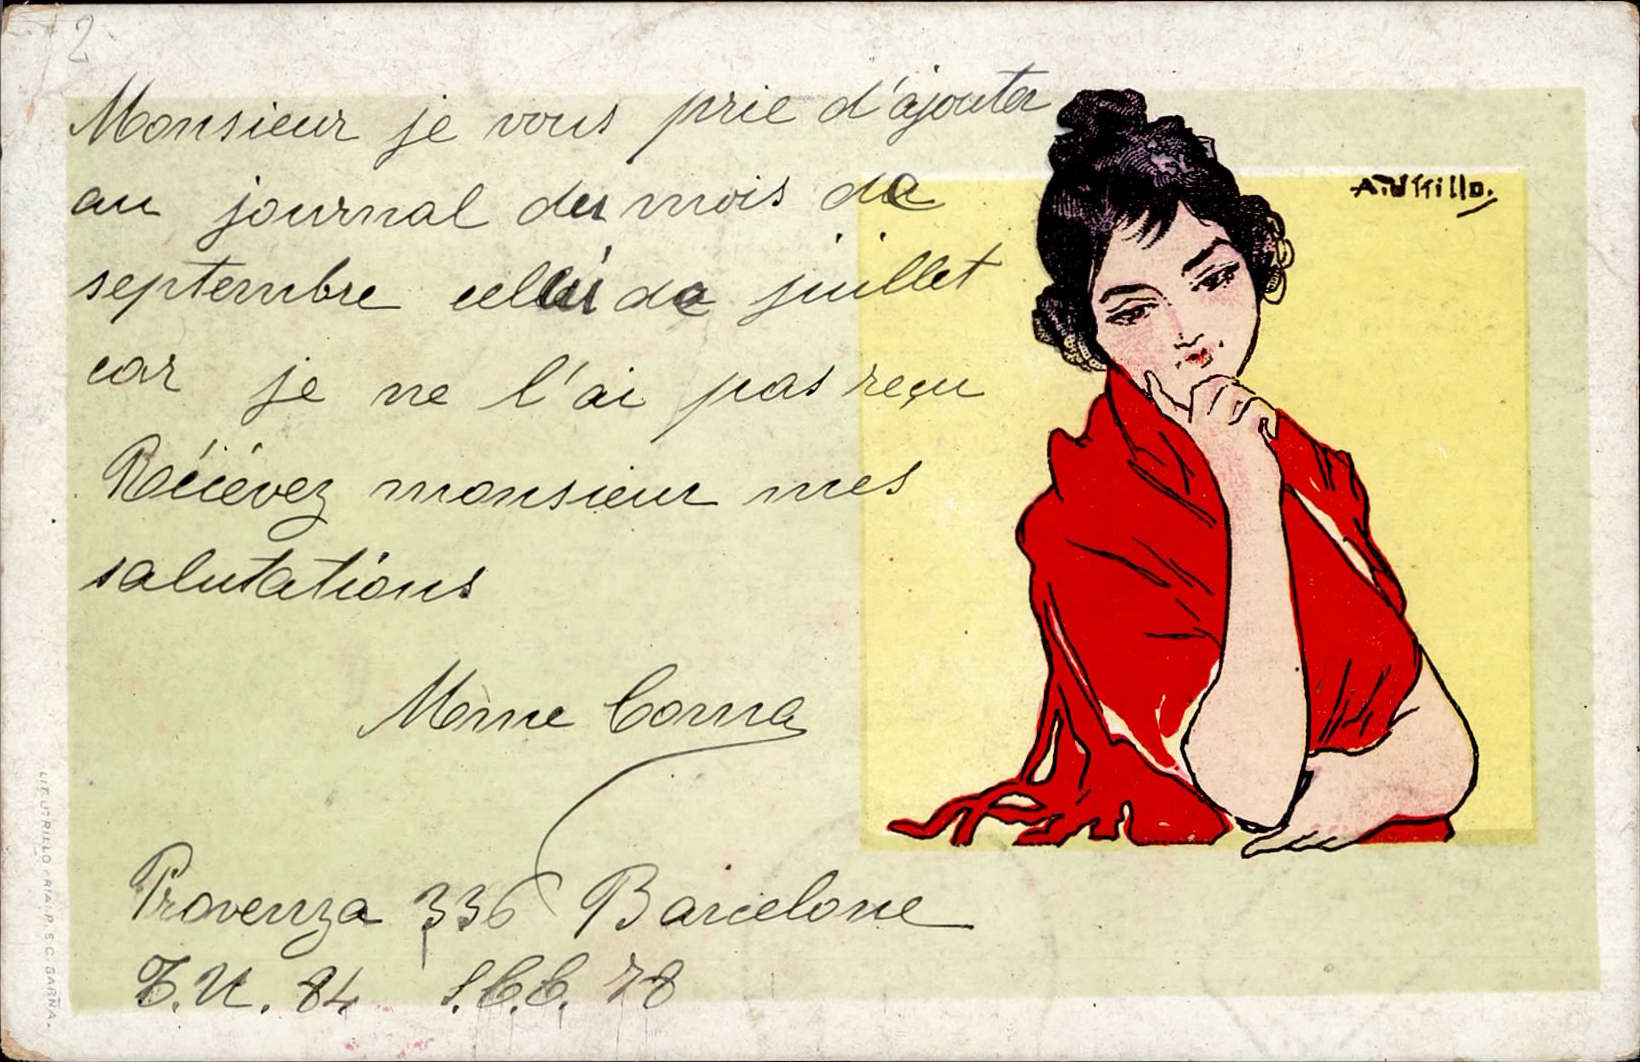 2
Monsieur je vous prie d'ajouter
au journal du mois de
septembre celui de juillet
car je ne l'ai pas reçu
Recevez monsieur mes
salutations
Mme Coma
Provenza 336 Barcelone
T.U. 84 S.C.C. 78
A. Utrillo.
LIT. UTRILLO
BARNA.